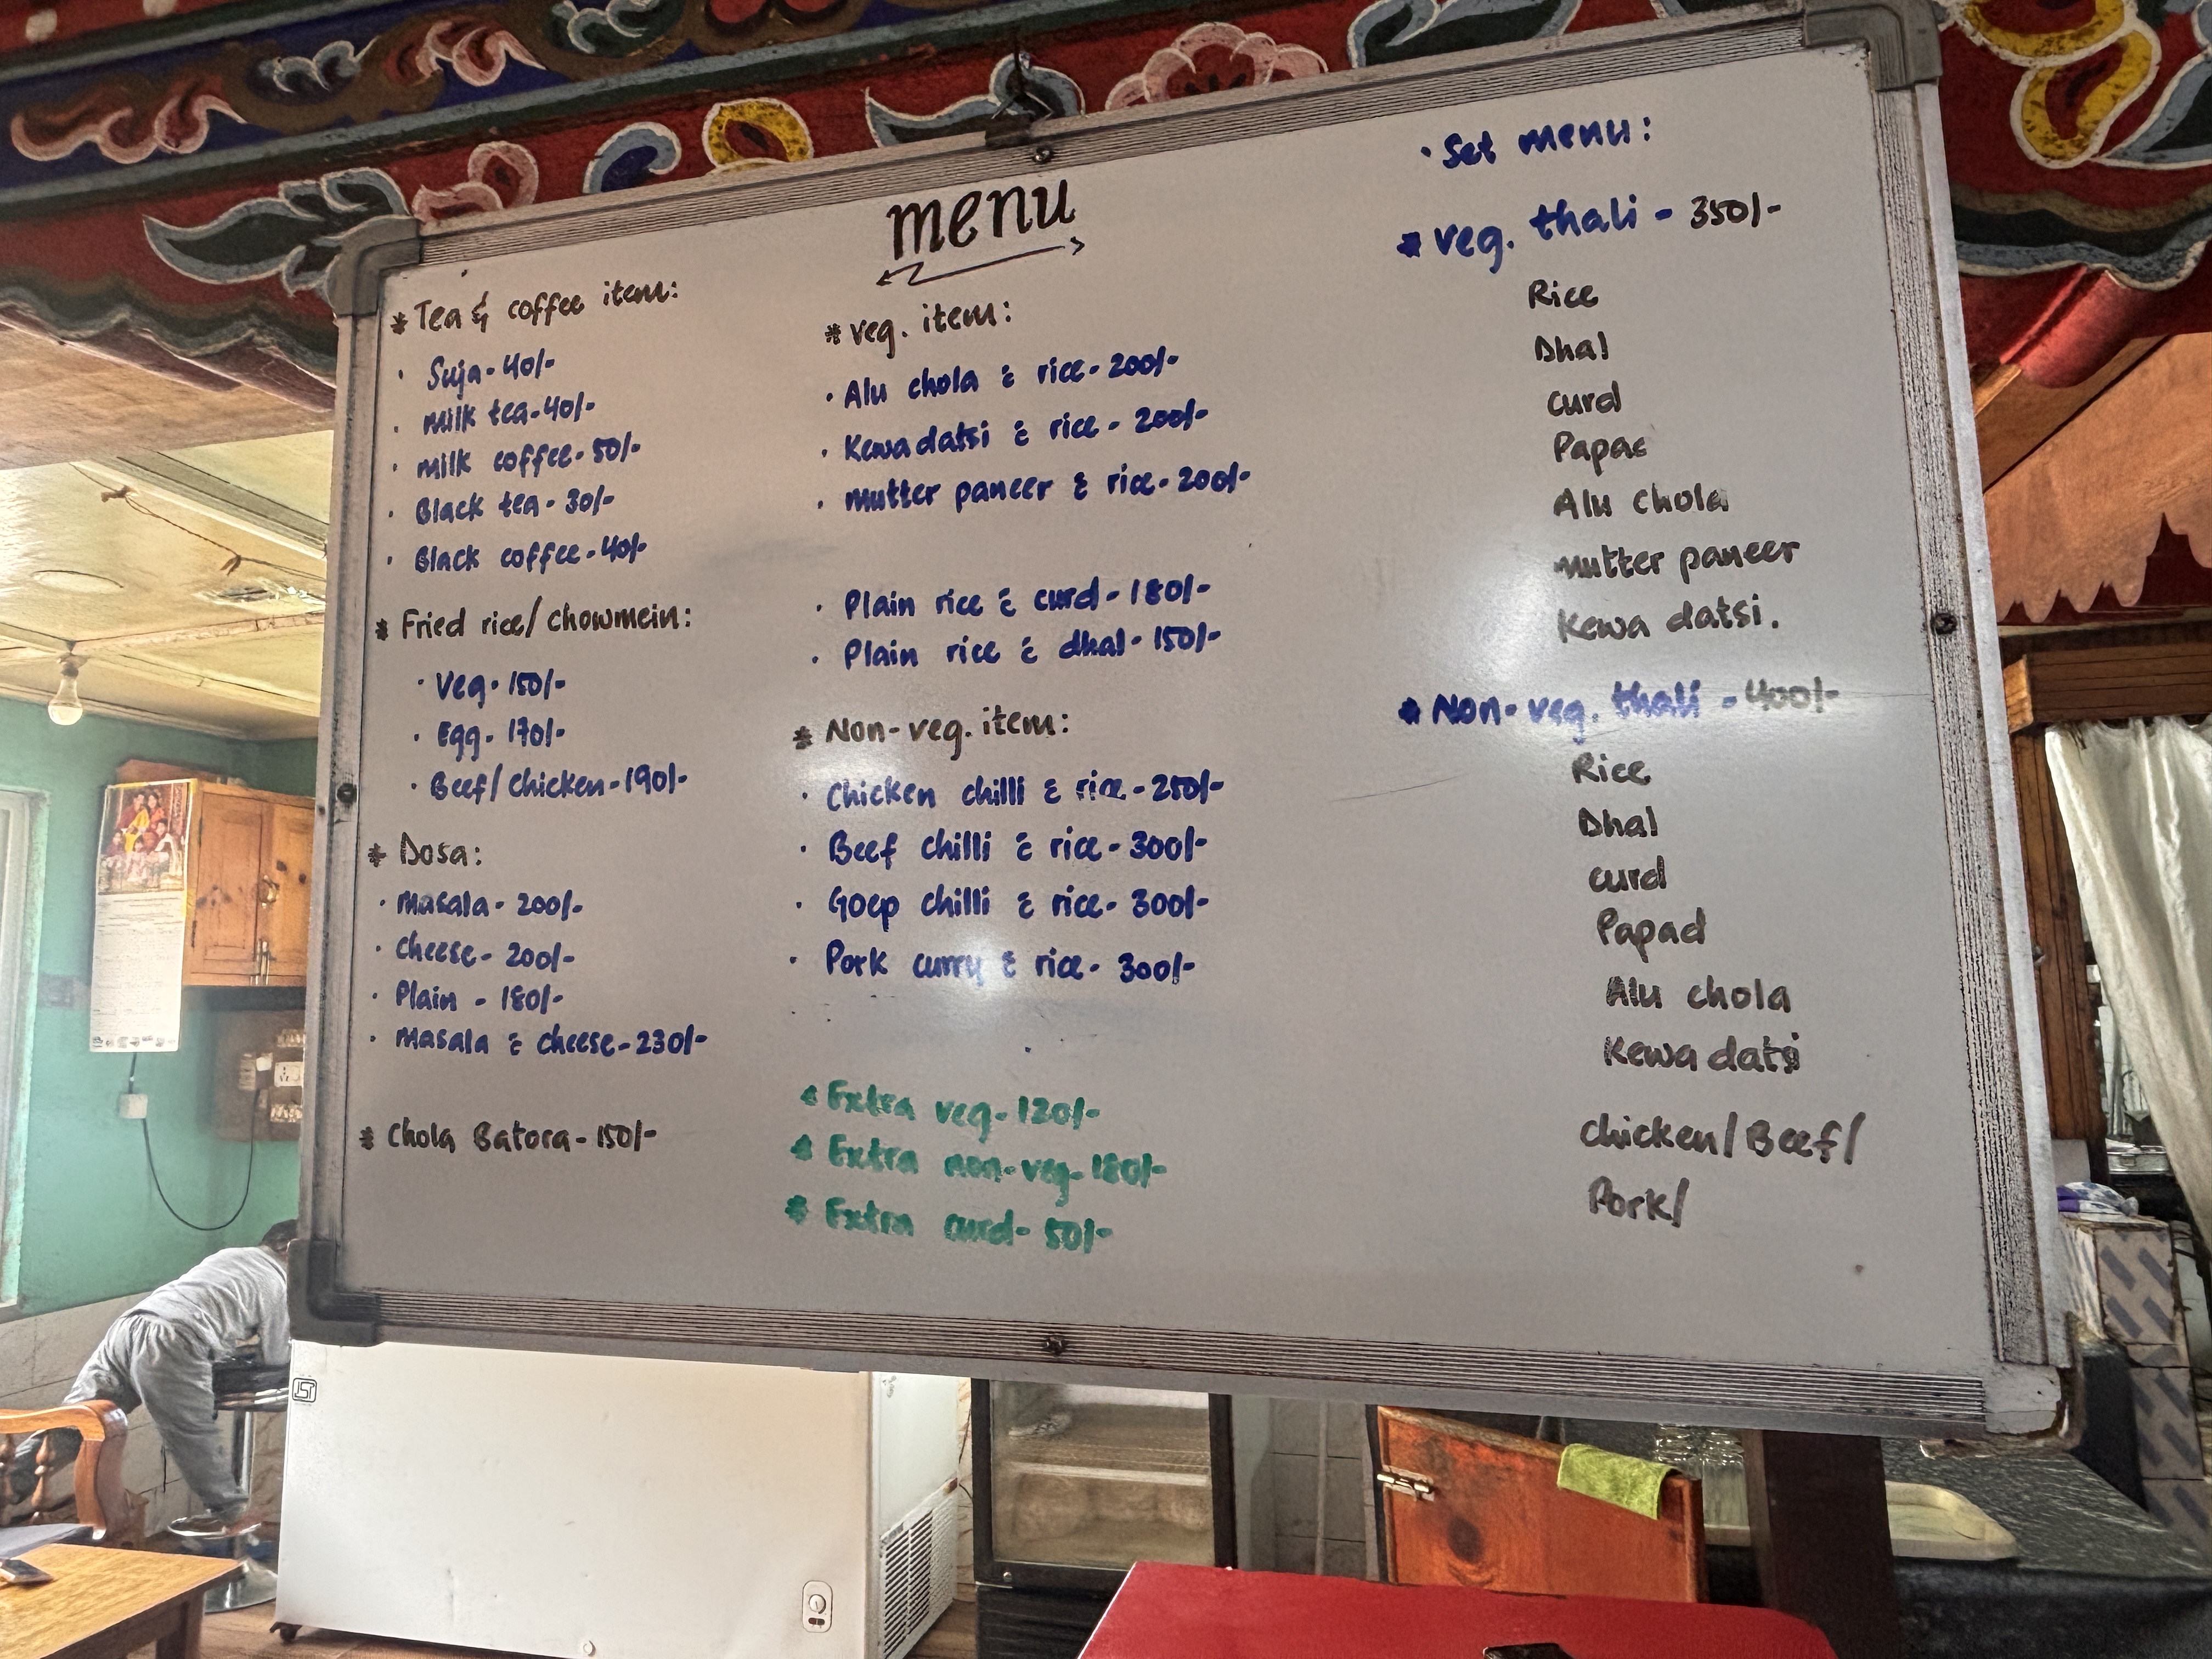 menu
* Tea & coffee item:
· Suja - 40/-
· Milk tea - 40/-
· Milk coffee - 50/-
· Black tea - 30/-
· Black coffee - 40/-
* Fried rice/chowmein:
· Veg - 150/-
· Egg - 170/-
· Beef/chicken - 190/-
* Dosa:
· Masala - 200/-
· Cheese - 200/-
· Plain - 180/-
· Masala & cheese - 230/-
* Chola Batora - 150/-
* Veg. item:
· Alu chola & rice - 200/-
· Kewa datsi & rice - 200/-
· Mutter paneer & rice - 200/-
· Plain rice & curd - 180/-
· Plain rice & dhal - 150/-
* Non-veg. item:
· Chicken chilli & rice - 250/-
· Beef chilli & rice - 300/-
· Goep chilli & rice - 300/-
· Pork curry & rice - 300/-
* Extra veg - 120/-
* Extra non-veg - 180/-
* Extra curd - 50/-
· Set menu:
* Veg. thali - 350/-
Rice
Dhal
Curd
Papad
Alu chola
Mutter paneer
Kewa datsi.
* Non-veg. thali - 400/-
Rice
Dhal
Curd
Papad
Alu chola
Kewa datsi
Chicken/Beef/
Pork/